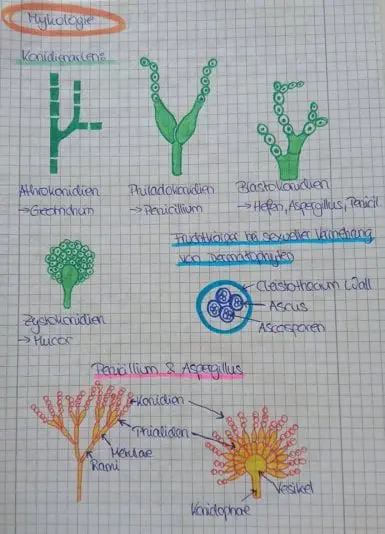 Mykologie
Konidienarten:
Athrokonidien
→ Geotrichum
Phialadokonidien
→ Penicillium
Blastokonidien
→ Hefen, Aspergillus, Penicil
Fruchtkörper bei sexueller Vermehrung
von Dermatophyten
Zystokonidien
→ Mucor
Cleistothecium Wall
Ascus
Ascosporen
Penicillium & Aspergillus
Konidien
Phialiden
Metulae
Rami
Vesikel
Konidophore